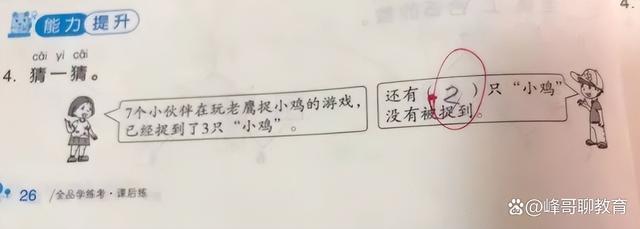 能力提升
cāi yi cāi
4. 猜一猜。
7个小伙伴在玩老鹰捉小鸡的游戏，
已经捉到了3只“小鸡”。
还有（2）只“小鸡”
没有被捉到。
26 /全品学练考·课后练
4.
@峰哥聊教育